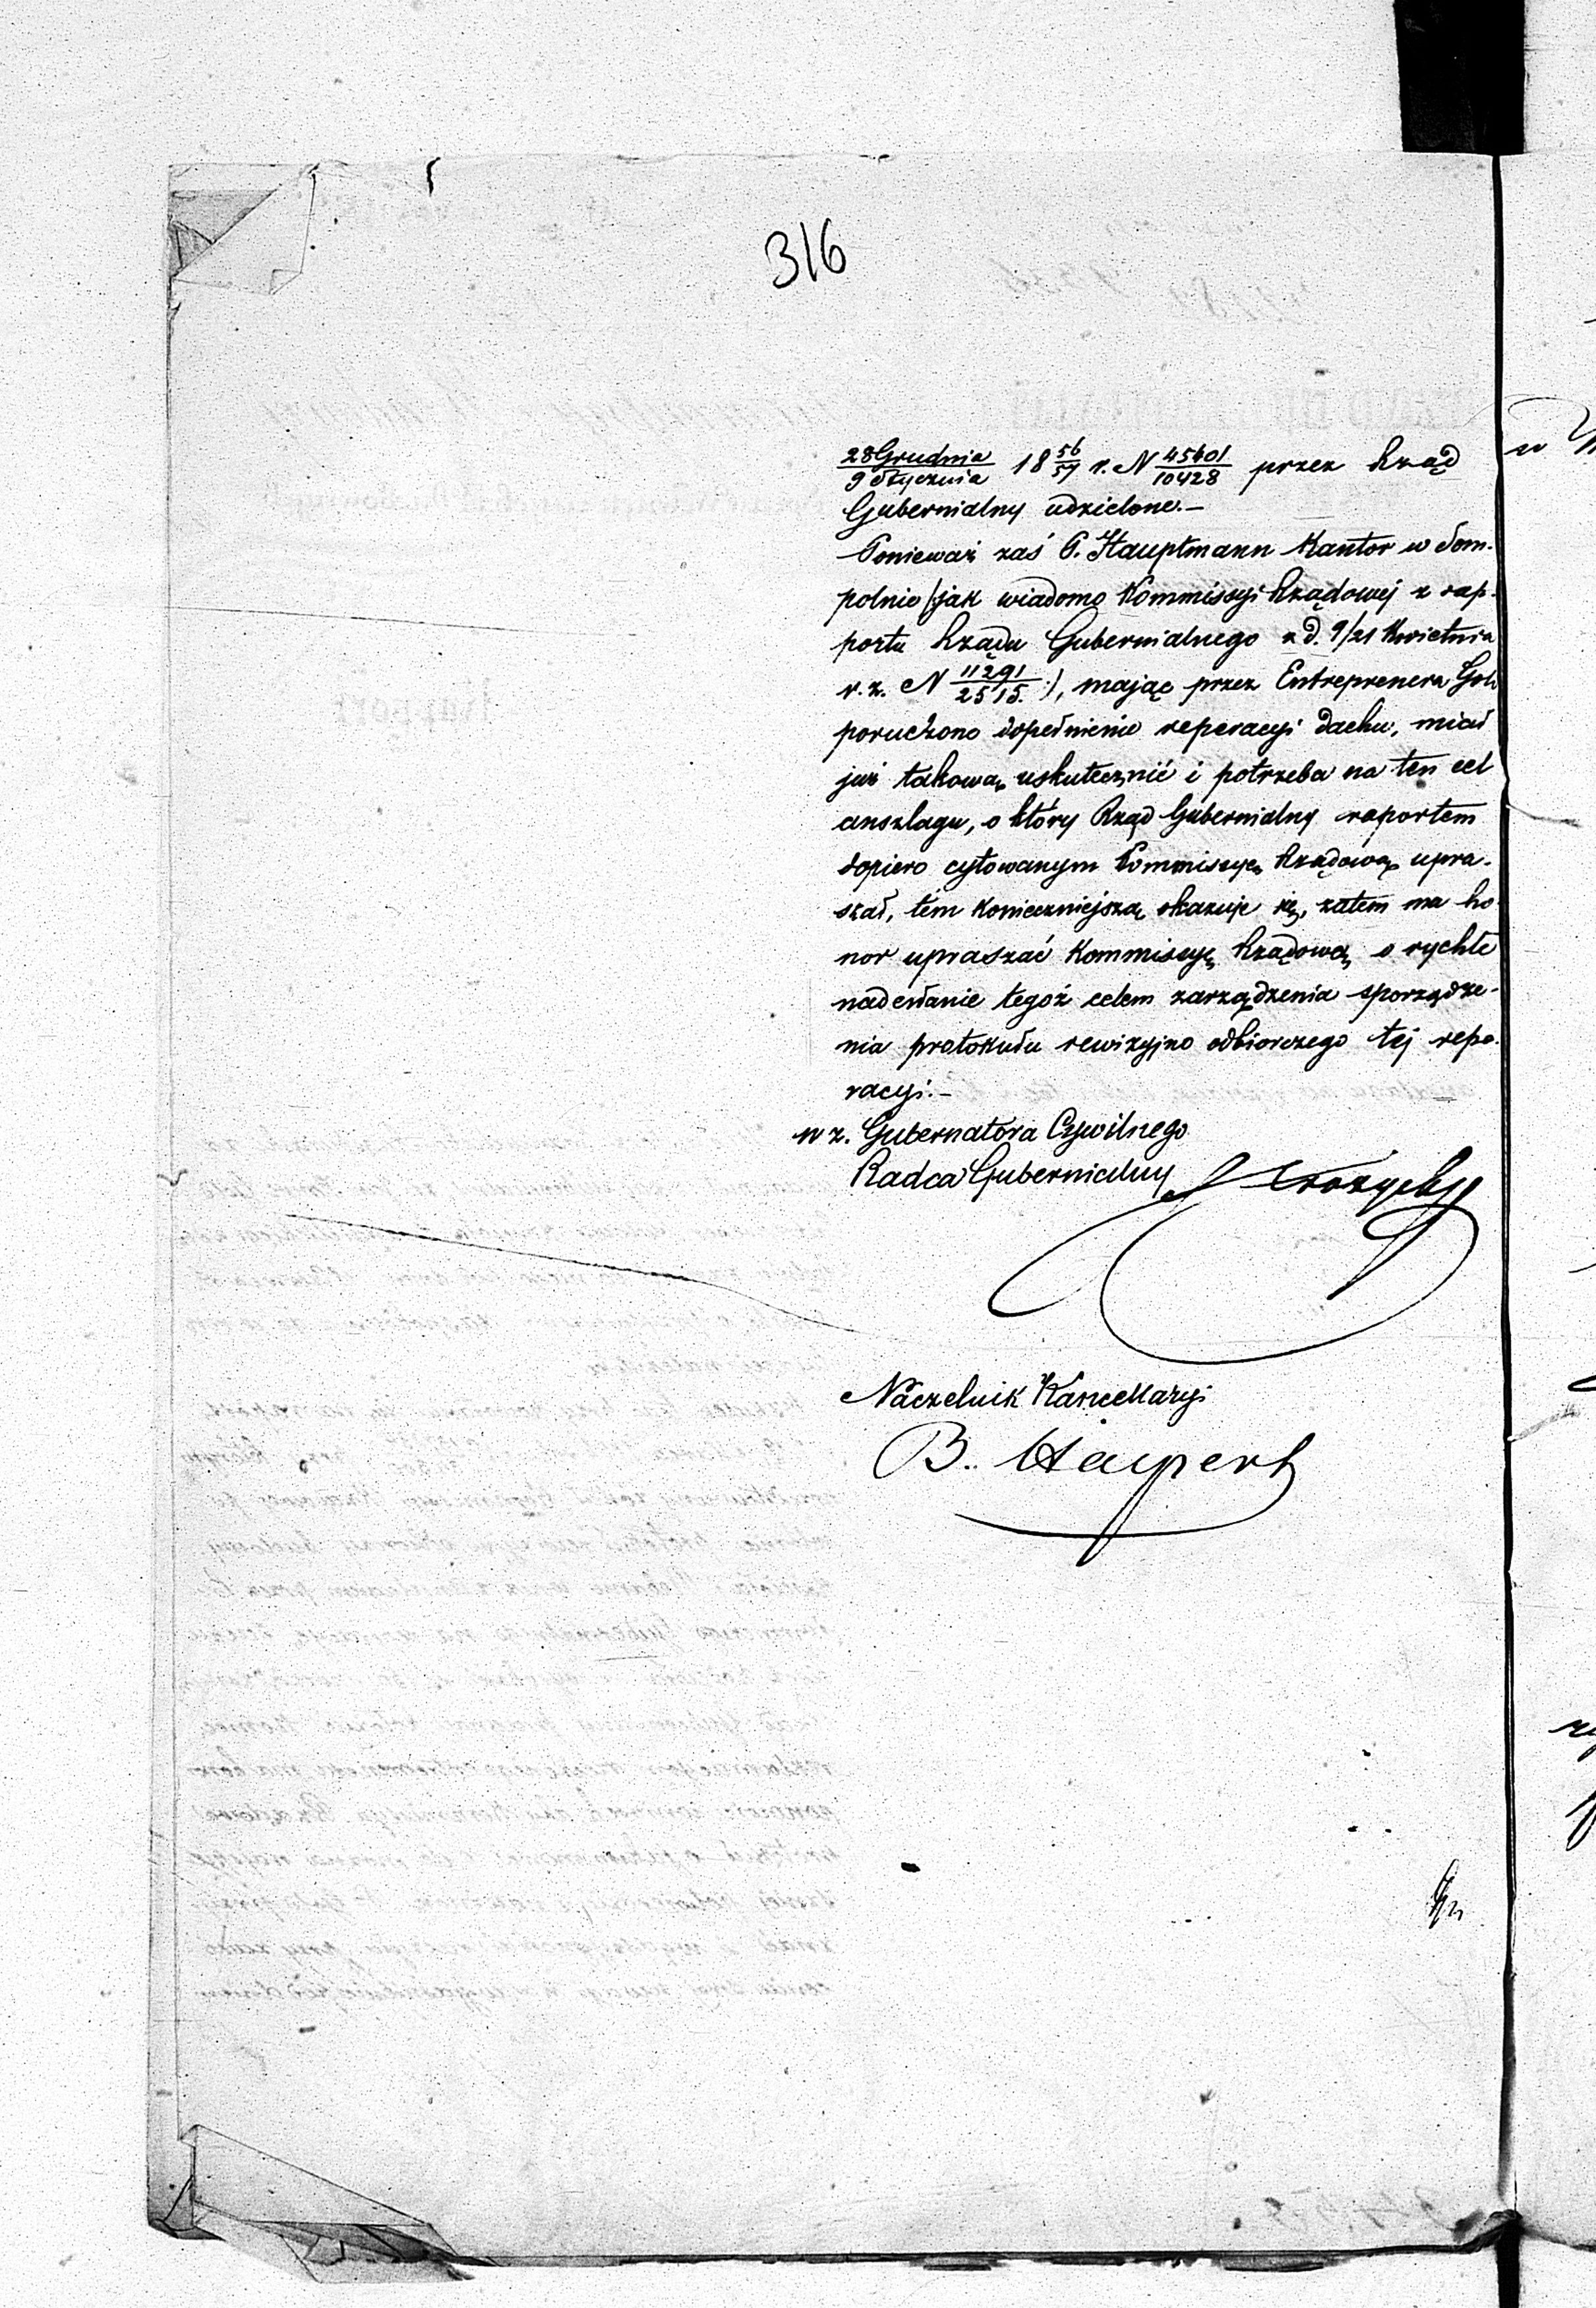 316
28 Grudnia / 9 Stycznia 18 56/57 r. N 45601/10428 przez Rząd
Gubernialny udzielone.—
Ponieważ zaś P. Hauptmann Kantor w Som-
polnie (:jak wiadomo Kommissyi Rządowej z rap-
portu Rządu Gubernialnego z d. 9/21 Kwietnia
r.z. N 11291/2515. :), mając przez Entreprenera
poruczono dopełnienie reperacyi dachu, miał
już takową uskutecznić i potrzeba na ten cel
anszlagu, o który Rząd Gubernialny raportem
dopiero cytowanym Kommissyę Rządową upra-
szał, tém konieczniejszą okazuje się, zatem ma ho-
nor upraszać Kommissyę Rządową o rychłe
nadesłanie tegoż celem zarządzenia sporządze-
nia protokułu rewizyjno odbiorczego tej repe-
racyi.—
w z. Gubernatora Cywilnego
Radca Gubernialny
Naczelnik Kancellaryi
B.